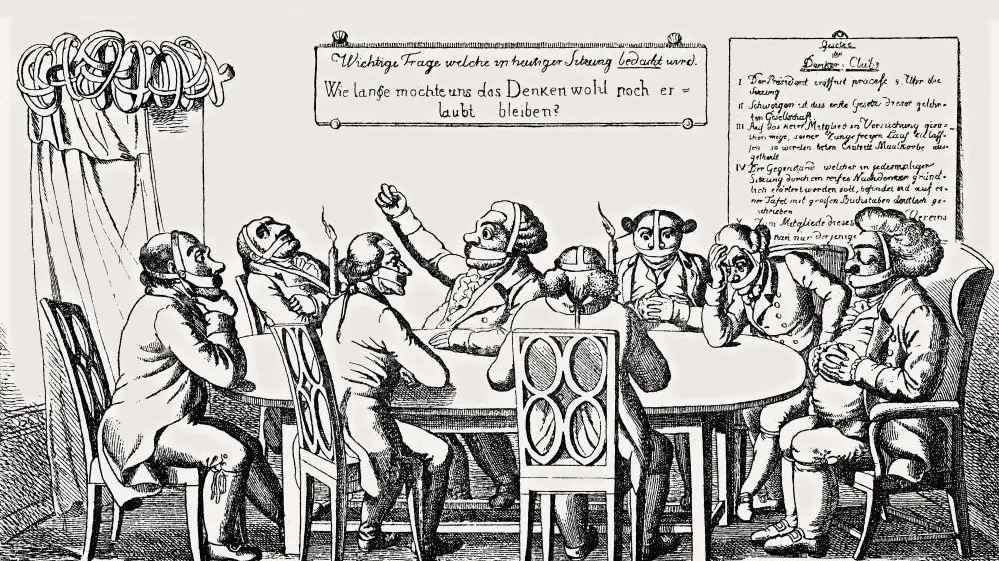 Wichtige Frage welche in heutiger Sitzung bedacht wird.
Wie lange möchte uns das Denken wohl noch er =
laubt bleiben?
der
Denker-Club.
I Der Präsident eröffnet präcise 8 Uhr die
Sitzung
II Schweigen ist das erste Gesetz dieser gelehr-
ten Gesellschaft
III Auf das kein Mitglied in Versuchung gera-
then möge, seiner Zunge freyen Lauf zu lass-
sen so werden beim Eintritt Maulkörbe aus-
getheilt
IV Der Gegenstand welcher in jedesmaliger
Sitzung durch ein reifes Nachdenken gründ-
lich erörtert werden soll, befindet sich auf ei-
ner Tafel mit großen Buchstaben deutlich ge-
schrieben
Zum Mitgliede dieses Vereins
man nur derjenige